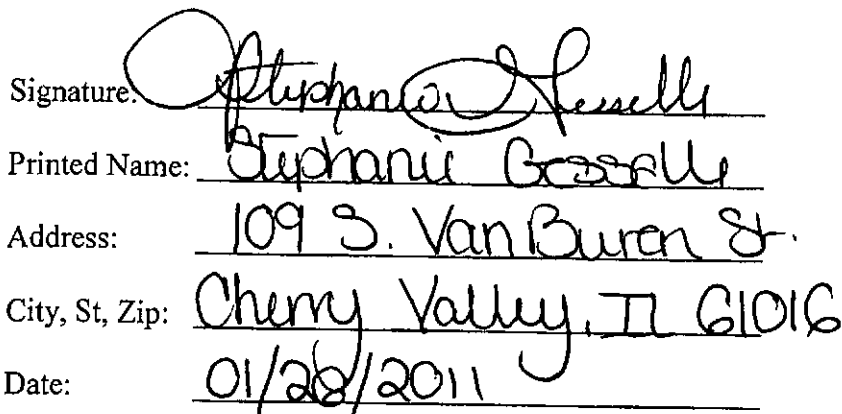 Signature: Stephanie Gosselle
Printed Name: Stephanie Gosselle
Address: 109 S. Van Buren St.
City, St, Zip: Cherry Valley, IL 61016
Date: 01/28/2011